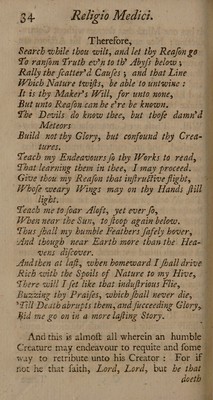 34 Religio Medici.
Therefore,
Search while thou wilt, and let thy Reason go
To ransom Truth ev'n to th' Abyss below;
Rally the scatter'd Causes; and that Line
Which Nature twists, be able to untwine:
It is thy Maker's Will, for unto none,
But unto Reason can he e're be known.
The Devils do know thee, but those damn'd
Meteors
Build not thy Glory, but confound thy Crea-
tures.
Teach my Endeavours so thy Works to read,
That learning them in thee, I may proceed.
Give thou my Reason that instructive flight,
Whose weary Wings may on thy Hands still
light.
Teach me to soar Aloft, yet ever so,
When near the Sun, to stoop again below.
Thus shall my humble Feathers safely hover,
And though near Earth more than the Hea-
vens discover.
And then at last, when homeward I shall drive
Rich with the Spoils of Nature to my Hive,
There will I set like that industrious Flie,
Buzzing thy Praises, which shall never die,
'Till Death abrupts them, and succeeding Glory,
Bid me go on in a more lasting Story.
And this is almost all wherein an humble
Creature may endeavour to requite and some
way to retribute unto his Creator: For if
not he that saith, Lord, Lord, but he that
doeth